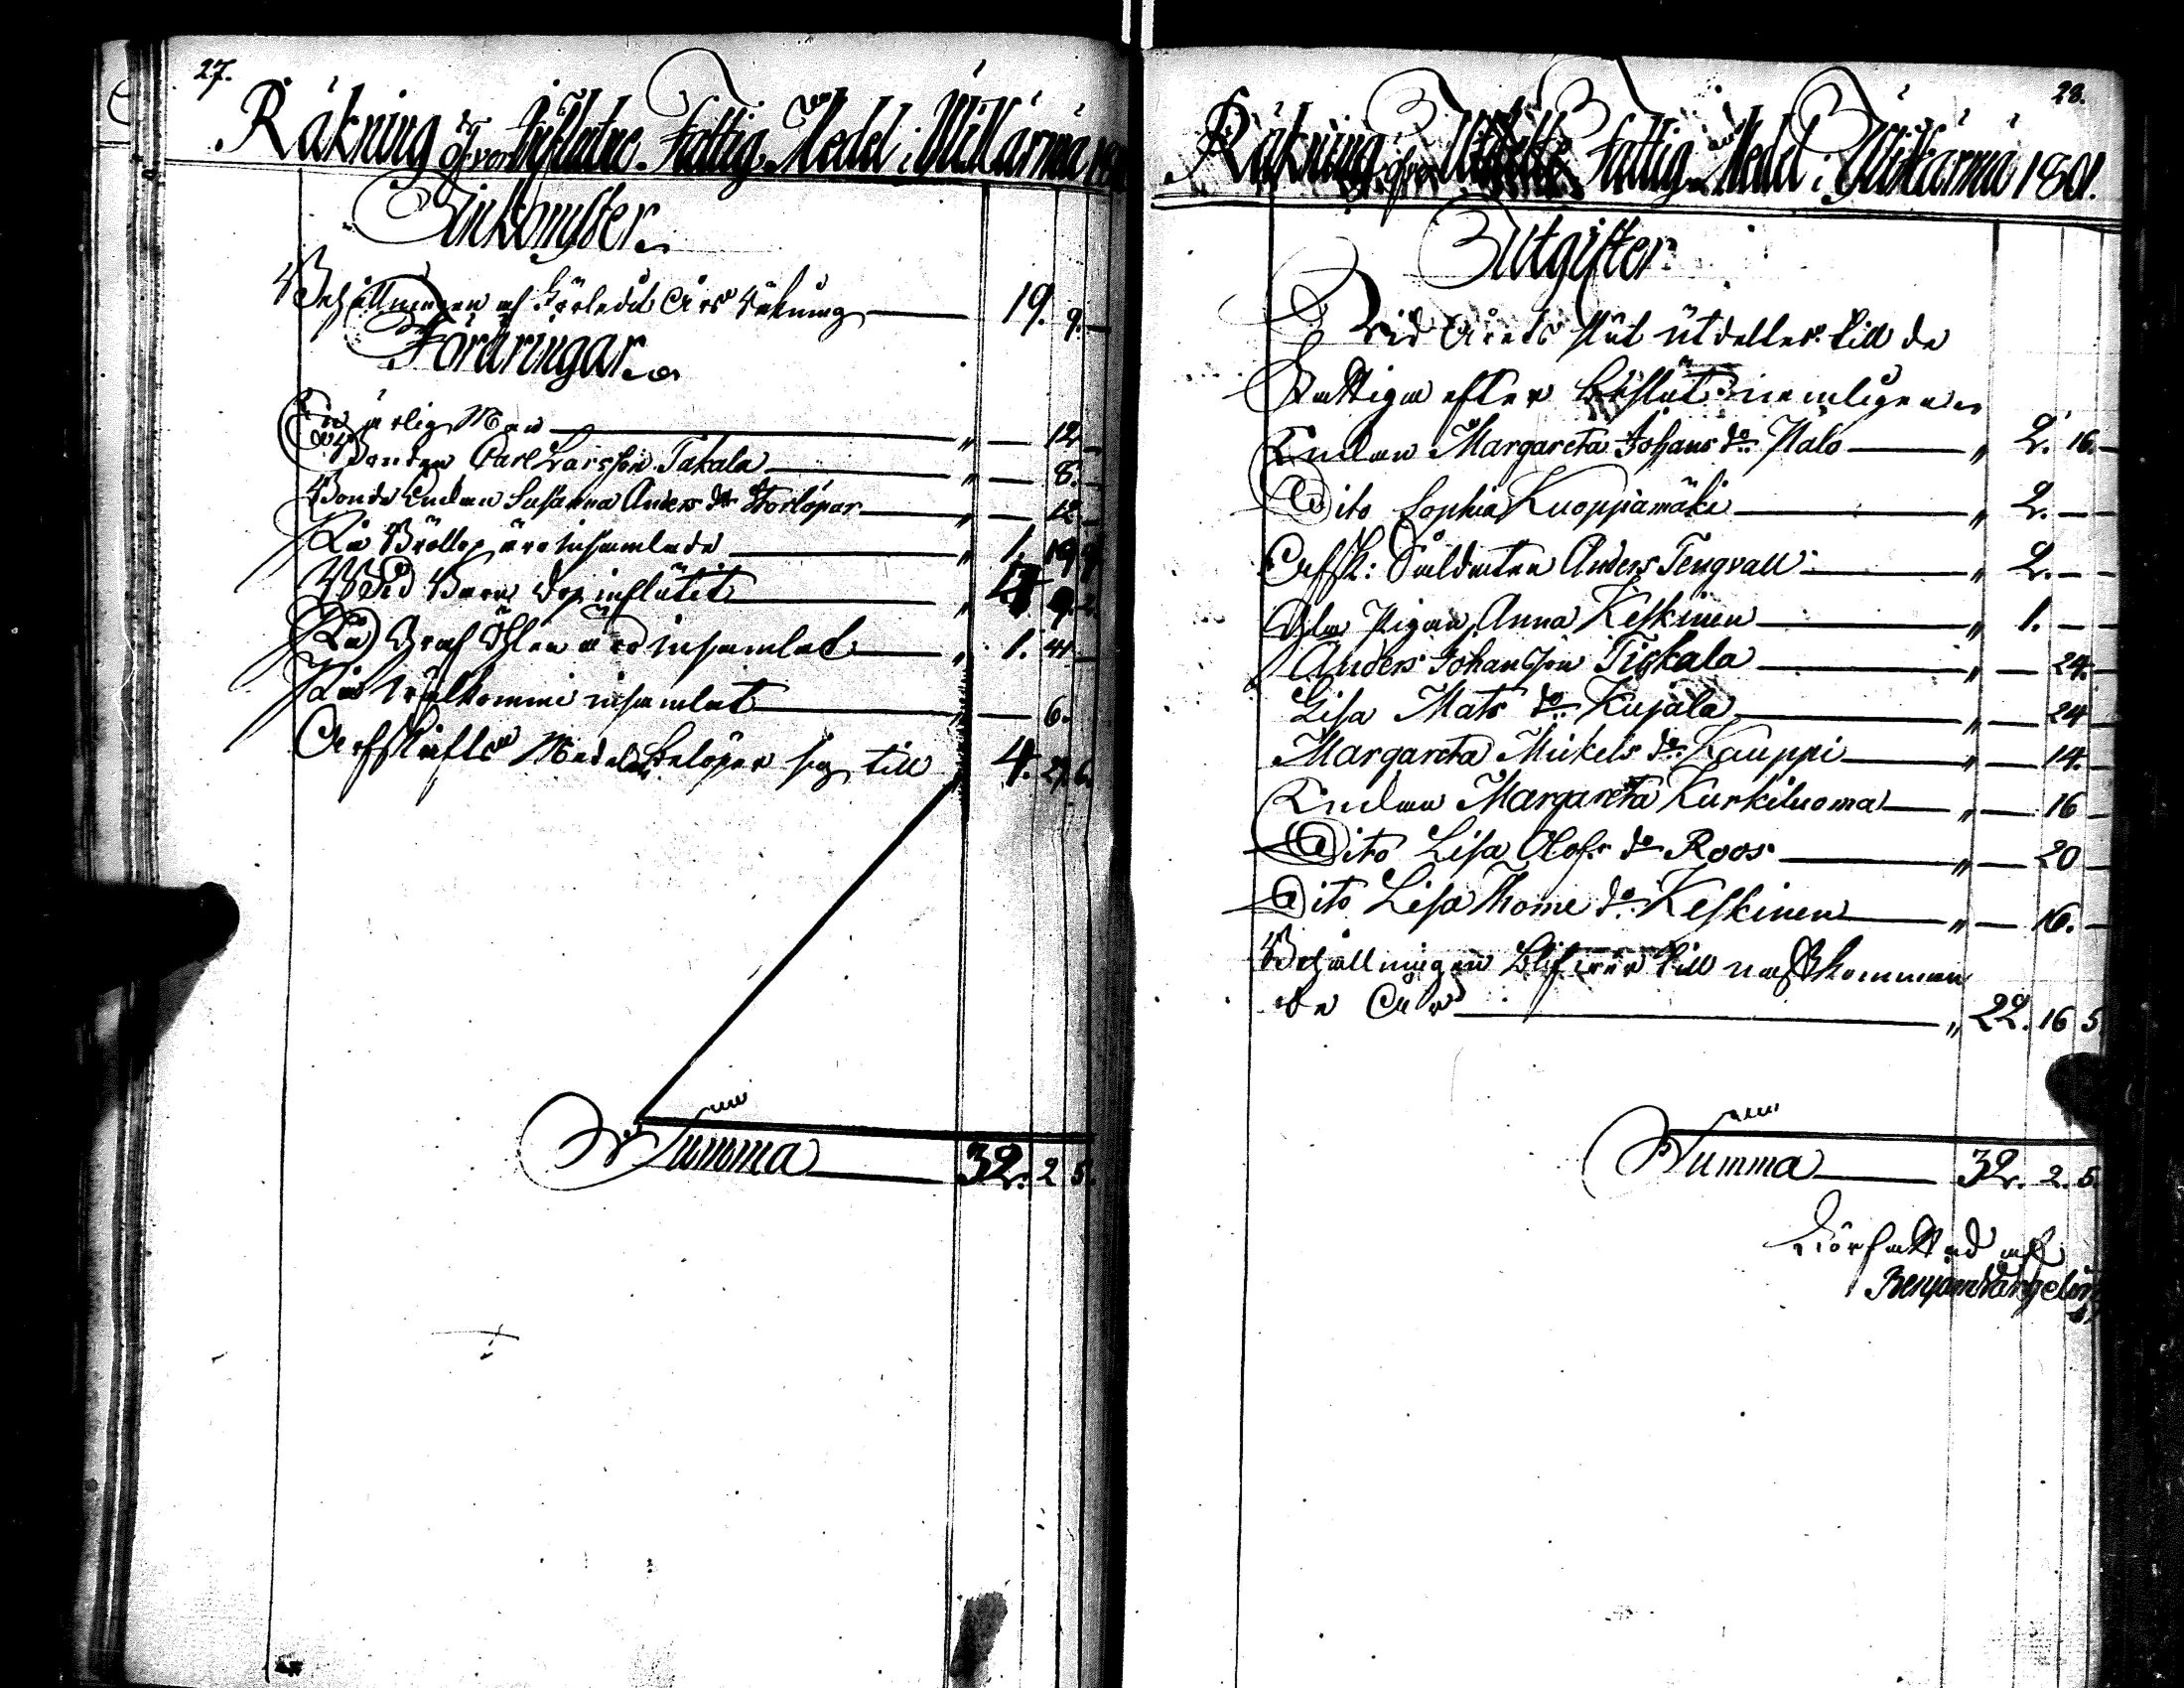 27.
Räkning öfver Influtne Fattig Medel i Ylikärmä 1801
Inkomster
Behållningen af Förledit Års Räkning 19. 9. —
Föräringar
En ärlig Man " — 12 —
Bonden Carl Larsson Takala " — 8. —
Bonde Enkan Susanna Anders dr Storlöpar " — 12 —
På Bröllop äro insamlade " 1. 19
Wid Barn dop influtit "
På Graf Öhlen äro insamlat " 1. 41 —
insamlat " — 6.
Arfskifts Medel belöper sig till " 4. 27. 6.
Summa 32. 2 5.
28.
Räkning öfver Fattig Medel i Ylikärmä 1801.
Utgifter
Wid Årets slut utdeltes till de
Fattiga efter Beslut nemligen
Enkan Margareta Johans dr Palo " 2. 16. —
Dito Sophia Kuoppamäki " 2. — —
Afsk: Soldaten Anders Tengvall " 2. — —
Pigan Anna Keskinen " 1. — —
Anders Johansson Tiskala " — 24. —
Lisa Mats dr Kujala " — 24 —
Margareta Mickels dr Kauppi " — 14. —
Enkan Margareta Kurkiluoma " — 16 —
Dito Lisa Olofs dr Roos " — 20 —
Dito Lisa Thome dr Keskinen " — 16. —
Behållningen blifver till näst komman
de År " 22. 16 5.
Summa 32. 2. 5.
Författad af
Benjam